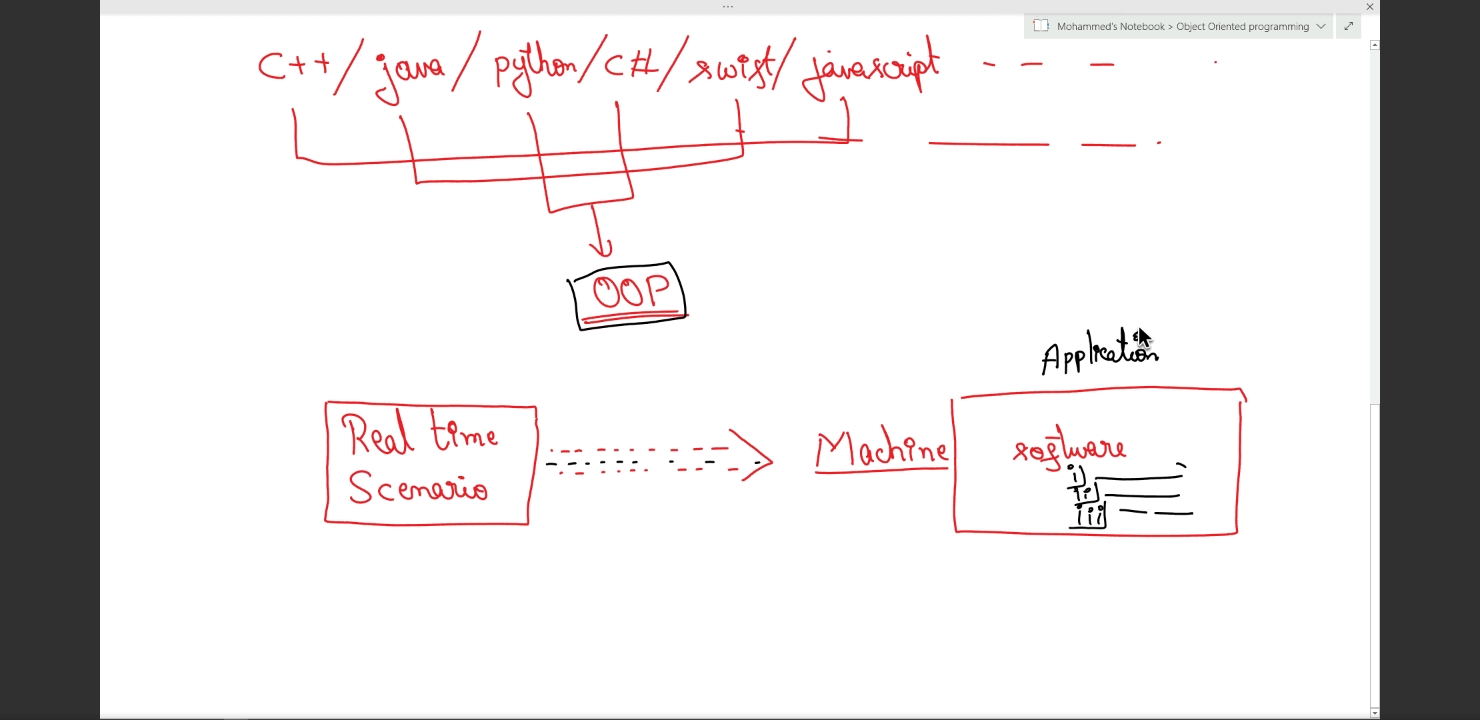 Mohammed's Notebook > Object Oriented programming
C++/java/python/C#/swift/javascript - - - .
OOP
Application
Real time
Scenario
Machine
software
i)
ii)
iii)